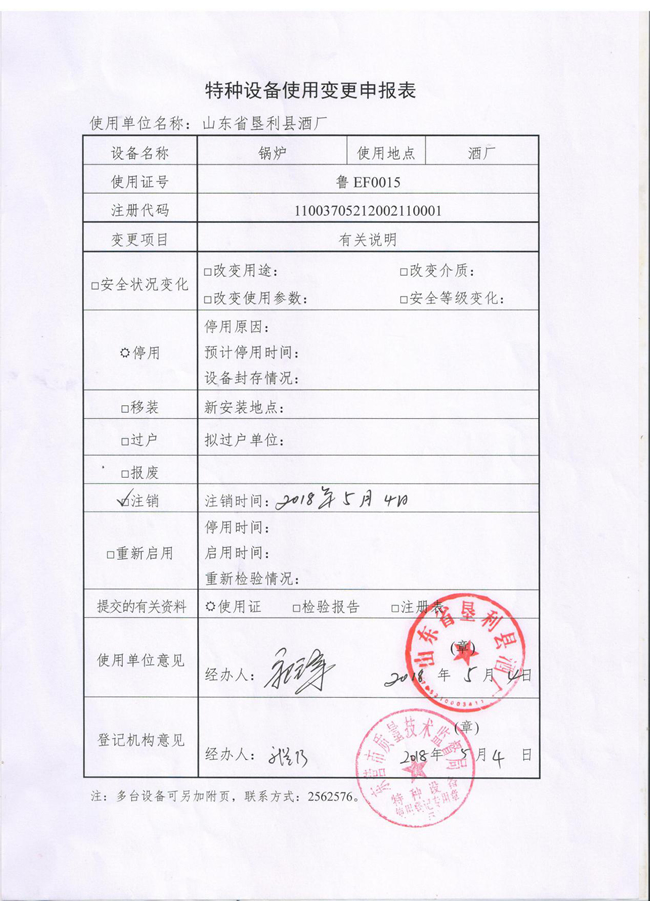 特种设备使用变更申报表
使用单位名称：山东省垦利县酒厂
设备名称 锅炉 使用地点 酒厂
使用证号 鲁 EF0015
注册代码 11003705212002110001
变更项目 有关说明
□安全状况变化 □改变用途： □改变介质：
□改变使用参数： □安全等级变化：
停用 停用原因：
预计停用时间：
设备封存情况：
□移装 新安装地点：
□过户 拟过户单位：
□报废
☑注销 注销时间：2018年5月4日
□重新启用 停用时间：
启用时间：
重新检验情况：
提交的有关资料 使用证 □检验报告 □注册表
使用单位意见 (章)
经办人： 2018 年 5 月 4日
山东省垦利县酒厂
登记机构意见 (章)
经办人： 2018年 5月 4 日
东营市质量技术监督局
特种设备
使用登记专用章
注：多台设备可另加附页，联系方式：2562576。